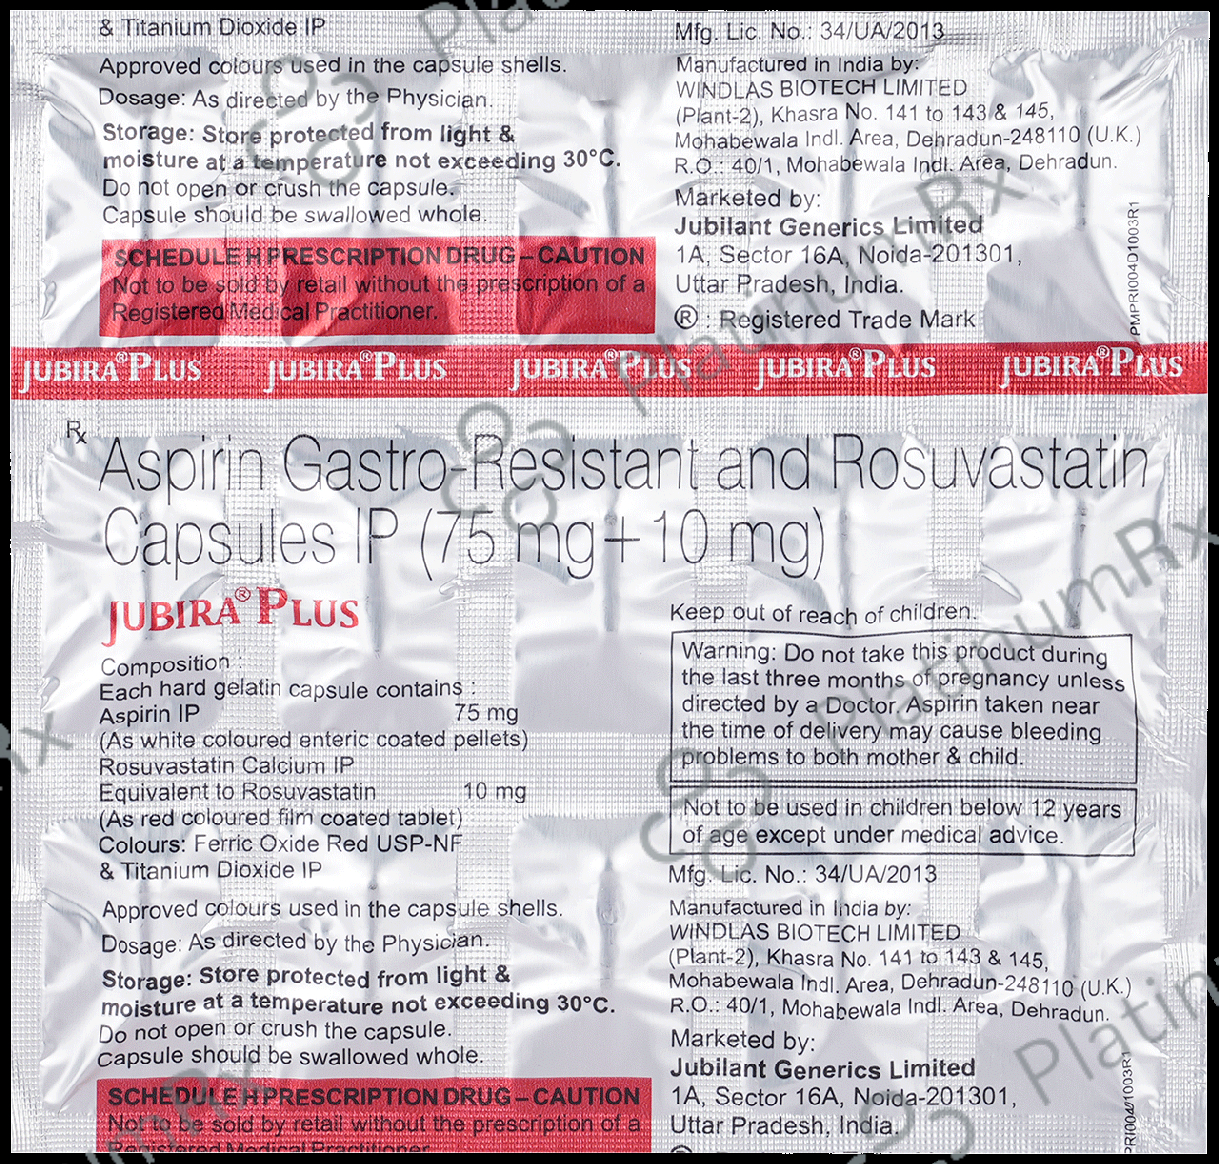 & Titanium Dioxide IP
Approved colours used in the capsule shells.
Dosage: As directed by the Physician.
Storage: Store protected from light &
moisture at a temperature not exceeding 30°C.
Do not open or crush the capsule.
Capsule should be swallowed whole.
SCHEDULE H PRESCRIPTION DRUG – CAUTION
Not to be sold by retail without the prescription of a
Registered Medical Practitioner.
Mfg. Lic. No.: 34/UA/2013
Manufactured in India by:
WINDLAS BIOTECH LIMITED
(Plant-2), Khasra No. 141 to 143 & 145,
Mohabewala Indl. Area, Dehradun-248110 (U.K.)
R.O.: 40/1, Mohabewala Indl. Area, Dehradun.
Marketed by:
Jubilant Generics Limited
1A, Sector 16A, Noida-201301,
Uttar Pradesh, India.
® : Registered Trade Mark
PMPRI004D1003R1
JUBIRA® PLUS JUBIRA® PLUS JUBIRA® PLUS JUBIRA® PLUS JUBIRA® PLUS
Rx
Aspirin Gastro-Resistant and Rosuvastatin
Capsules IP (75 mg+10 mg)
JUBIRA® PLUS
Composition :
Each hard gelatin capsule contains :
Aspirin IP 75 mg
(As white coloured enteric coated pellets)
Rosuvastatin Calcium IP
Equivalent to Rosuvastatin 10 mg
(As red coloured film coated tablet)
Colours: Ferric Oxide Red USP-NF
& Titanium Dioxide IP
Approved colours used in the capsule shells.
Dosage: As directed by the Physician.
Storage: Store protected from light &
moisture at a temperature not exceeding 30°C.
Do not open or crush the capsule.
Capsule should be swallowed whole.
SCHEDULE H PRESCRIPTION DRUG – CAUTION
Not to be sold by retail without the prescription of a
Registered Medical Practitioner.
Keep out of reach of children.
Warning: Do not take this product during
the last three months of pregnancy unless
directed by a Doctor. Aspirin taken near
the time of delivery may cause bleeding
problems to both mother & child.
Not to be used in children below 12 years
of age except under medical advice.
Mfg. Lic. No.: 34/UA/2013
Manufactured in India by:
WINDLAS BIOTECH LIMITED
(Plant-2), Khasra No. 141 to 143 & 145,
Mohabewala Indl. Area, Dehradun-248110 (U.K.)
R.O.: 40/1, Mohabewala Indl. Area, Dehradun.
Marketed by:
Jubilant Generics Limited
1A, Sector 16A, Noida-201301,
Uttar Pradesh, India.
PlatinumRx
PlatinumRx
PlatinumRx